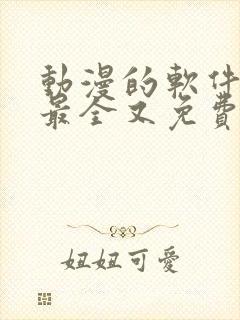 動漫的軟件
最全又免費
妞妞可愛